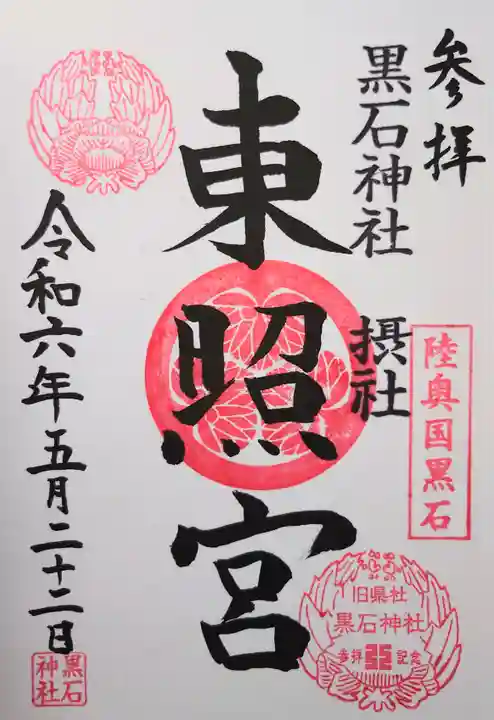 参拝
陸奥国黒石
黒石神社 摂社
東照宮
旧県社
黒石神社
参拝 記念
令和六年五月二十二日
黒石
神社